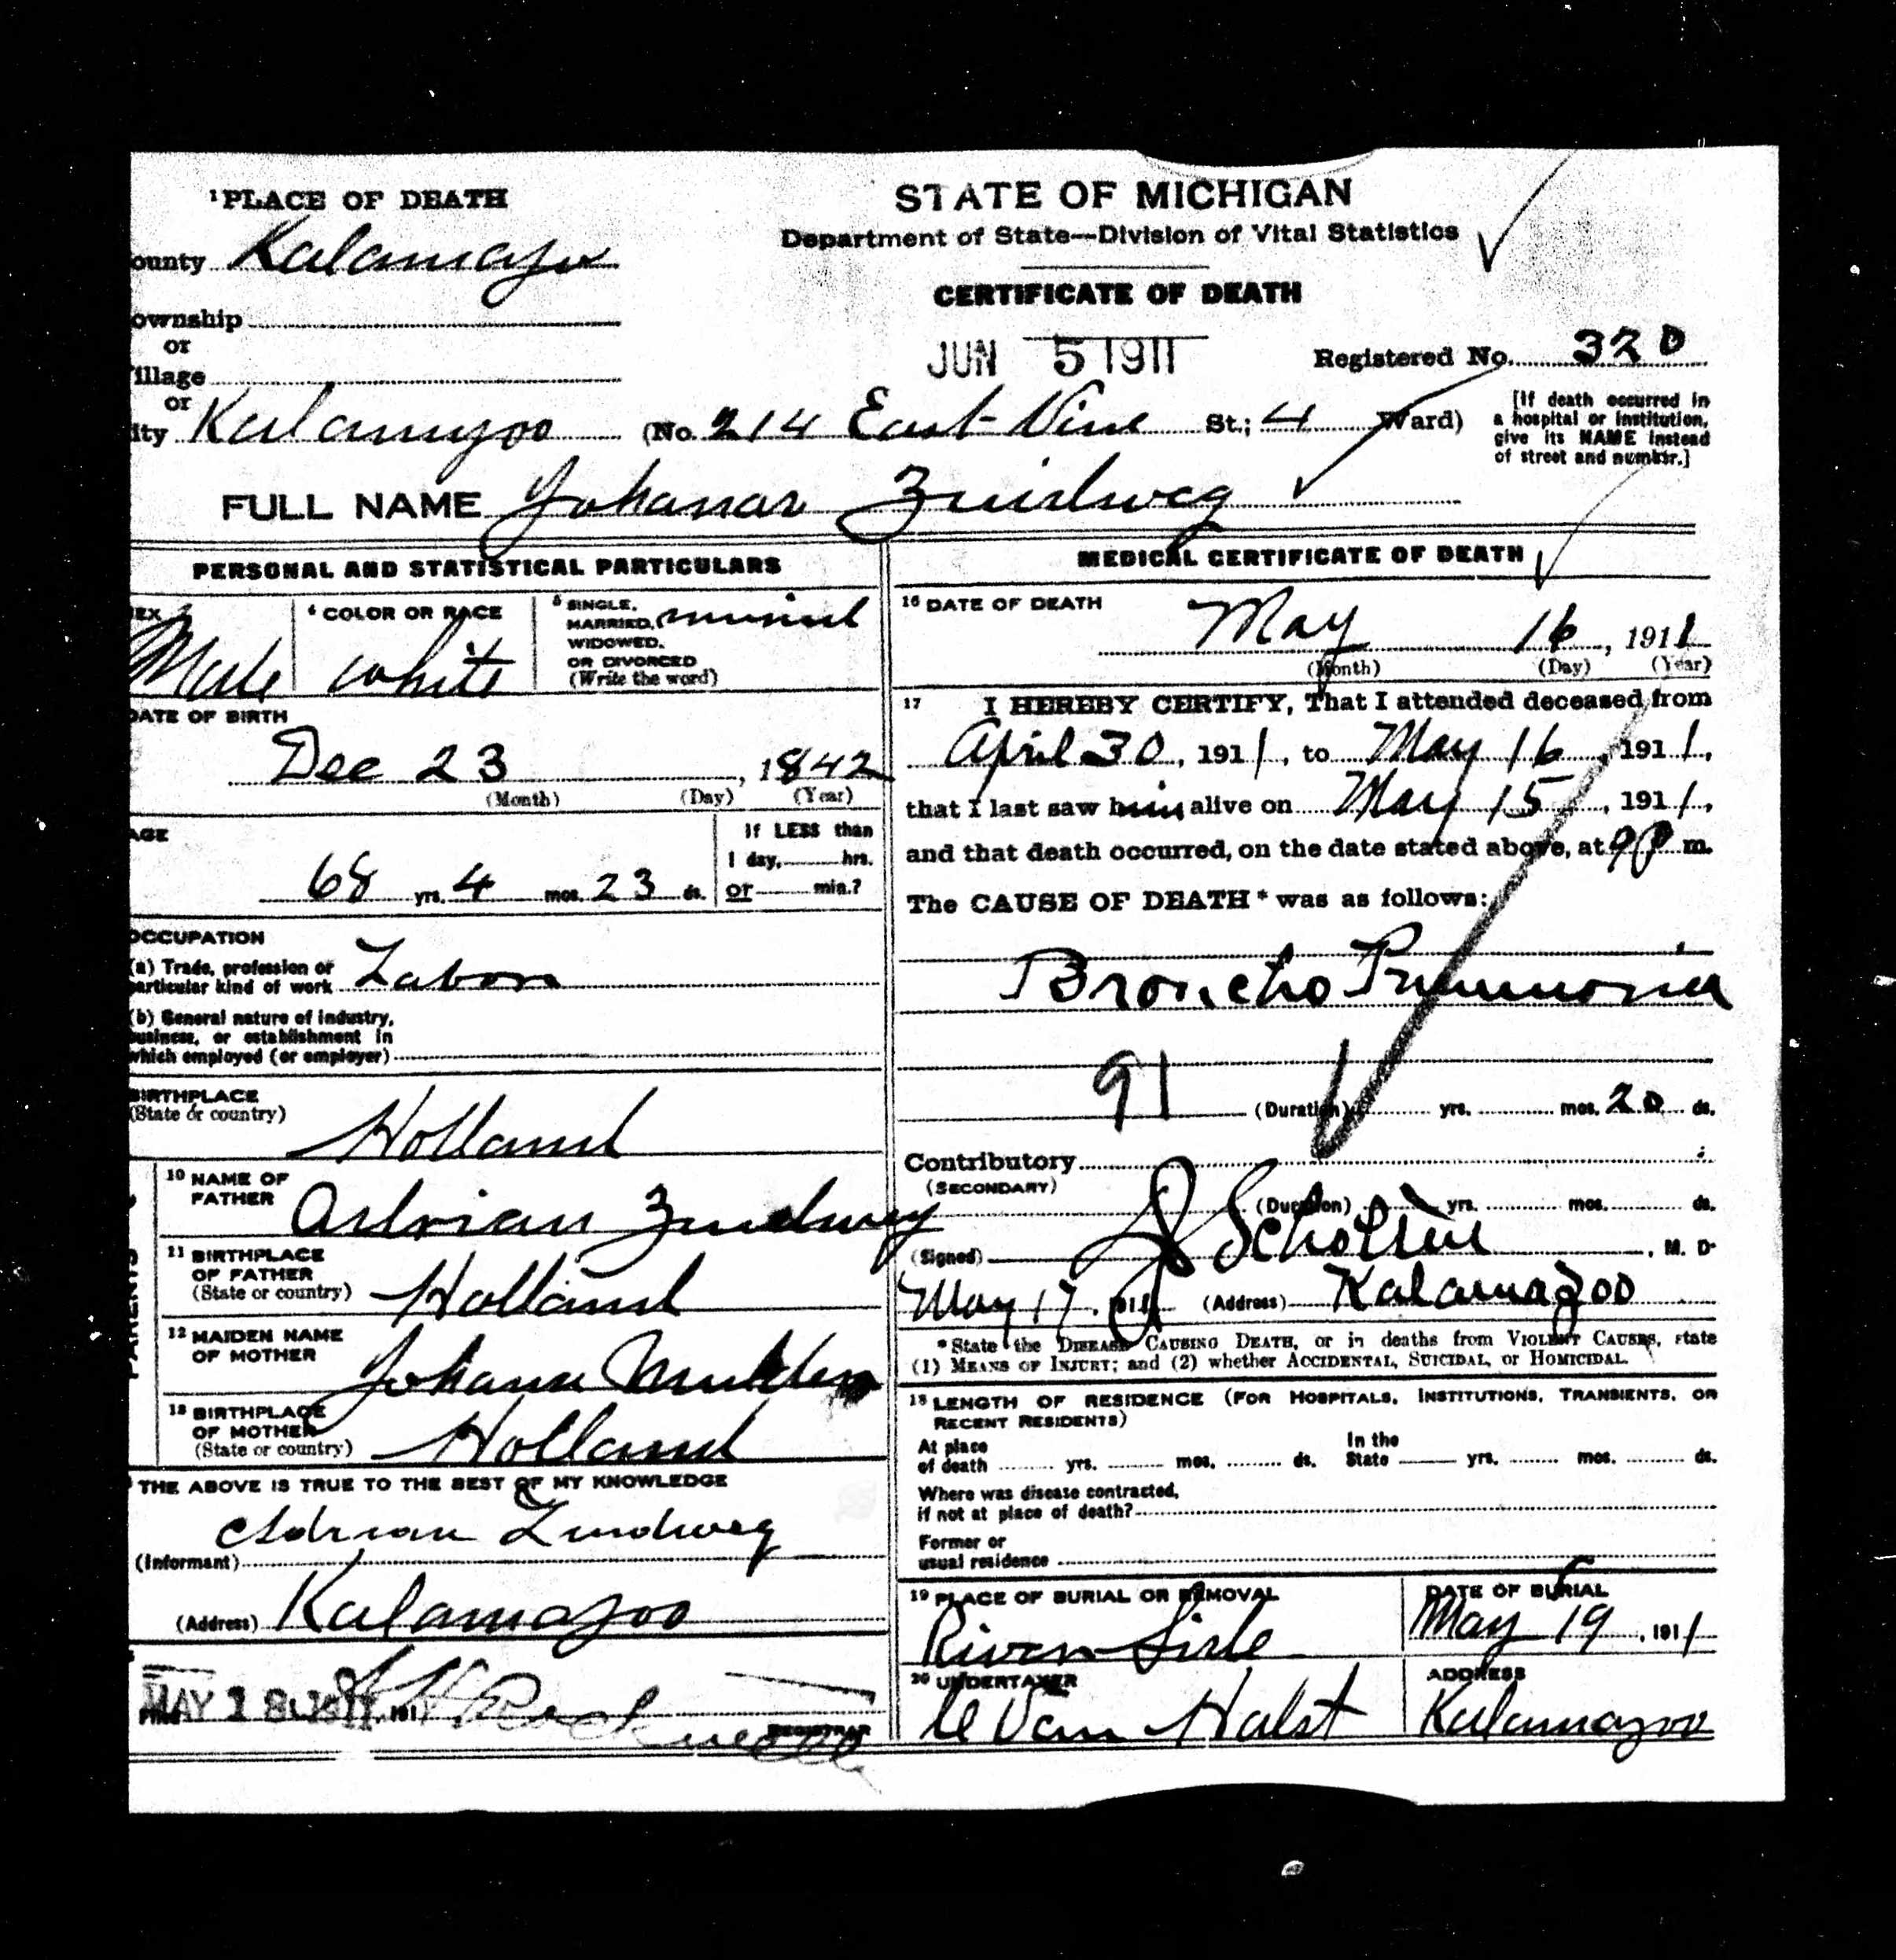 1 PLACE OF DEATH
ounty Kalamazoo
ownship
or
illage
or
ity Kalamazoo (No. 214 East Vine St.; 4 Ward)
STATE OF MICHIGAN
Department of State—Division of Vital Statistics
CERTIFICATE OF DEATH
JUN 5 1911
Registered No. 320
[If death occurred in
a hospital or institution,
give its NAME instead
of street and number.]
FULL NAME Johanas Zuidweg
PERSONAL AND STATISTICAL PARTICULARS
EX 3
Male
4 COLOR OR RACE
White
5 SINGLE,
MARRIED,
WIDOWED,
OR DIVORCED
(Write the word)
DATE OF BIRTH
Dec 23, 1842
(Month) (Day) (Year)
AGE
68 yrs. 4 mos. 23 ds.
If LESS than
1 day, hrs.
or min.?
OCCUPATION
(a) Trade, profession or
particular kind of work Labor
(b) General nature of industry,
business, or establishment in
which employed (or employer)
BIRTHPLACE
(State or country)
Holland
PARENTS
10 NAME OF
FATHER
Adrian Zuidweg
11 BIRTHPLACE
OF FATHER
(State or country) Holland
12 MAIDEN NAME
OF MOTHER
Johana Mulder
13 BIRTHPLACE
OF MOTHER
(State or country) Holland
THE ABOVE IS TRUE TO THE BEST OF MY KNOWLEDGE
Adrian Zuidweg
(Informant)
(Address) Kalamazoo
MAY 18 1911
REGISTRAR
MEDICAL CERTIFICATE OF DEATH
16 DATE OF DEATH
May 16, 1911
(Month) (Day) (Year)
17 I HEREBY CERTIFY, That I attended deceased from
April 30, 1911, to May 16, 1911,
that I last saw him alive on May 15, 1911,
and that death occurred, on the date stated above, at 9 P m.
The CAUSE OF DEATH * was as follows:
Broncho Pneumonia
91
(Duration) yrs. mos. 20 ds.
Contributory
(SECONDARY)
(Duration) yrs. mos. ds.
(Signed) J Scholten, M. D.
May 17, 1911 (Address) Kalamazoo
* State the DISEASE CAUSING DEATH, or in deaths from VIOLENT CAUSES, state
(1) MEANS OF INJURY; and (2) whether ACCIDENTAL, SUICIDAL, or HOMICIDAL.
18 LENGTH OF RESIDENCE (FOR HOSPITALS, INSTITUTIONS, TRANSIENTS, OR
RECENT RESIDENTS)
At place
of death yrs. mos. ds.
In the
State yrs. mos. ds.
Where was disease contracted,
if not at place of death?
Former or
usual residence
19 PLACE OF BURIAL OR REMOVAL
River Side
DATE OF BURIAL
May 19, 1911
20 UNDERTAKER
Van Halst
ADDRESS
Kalamazoo